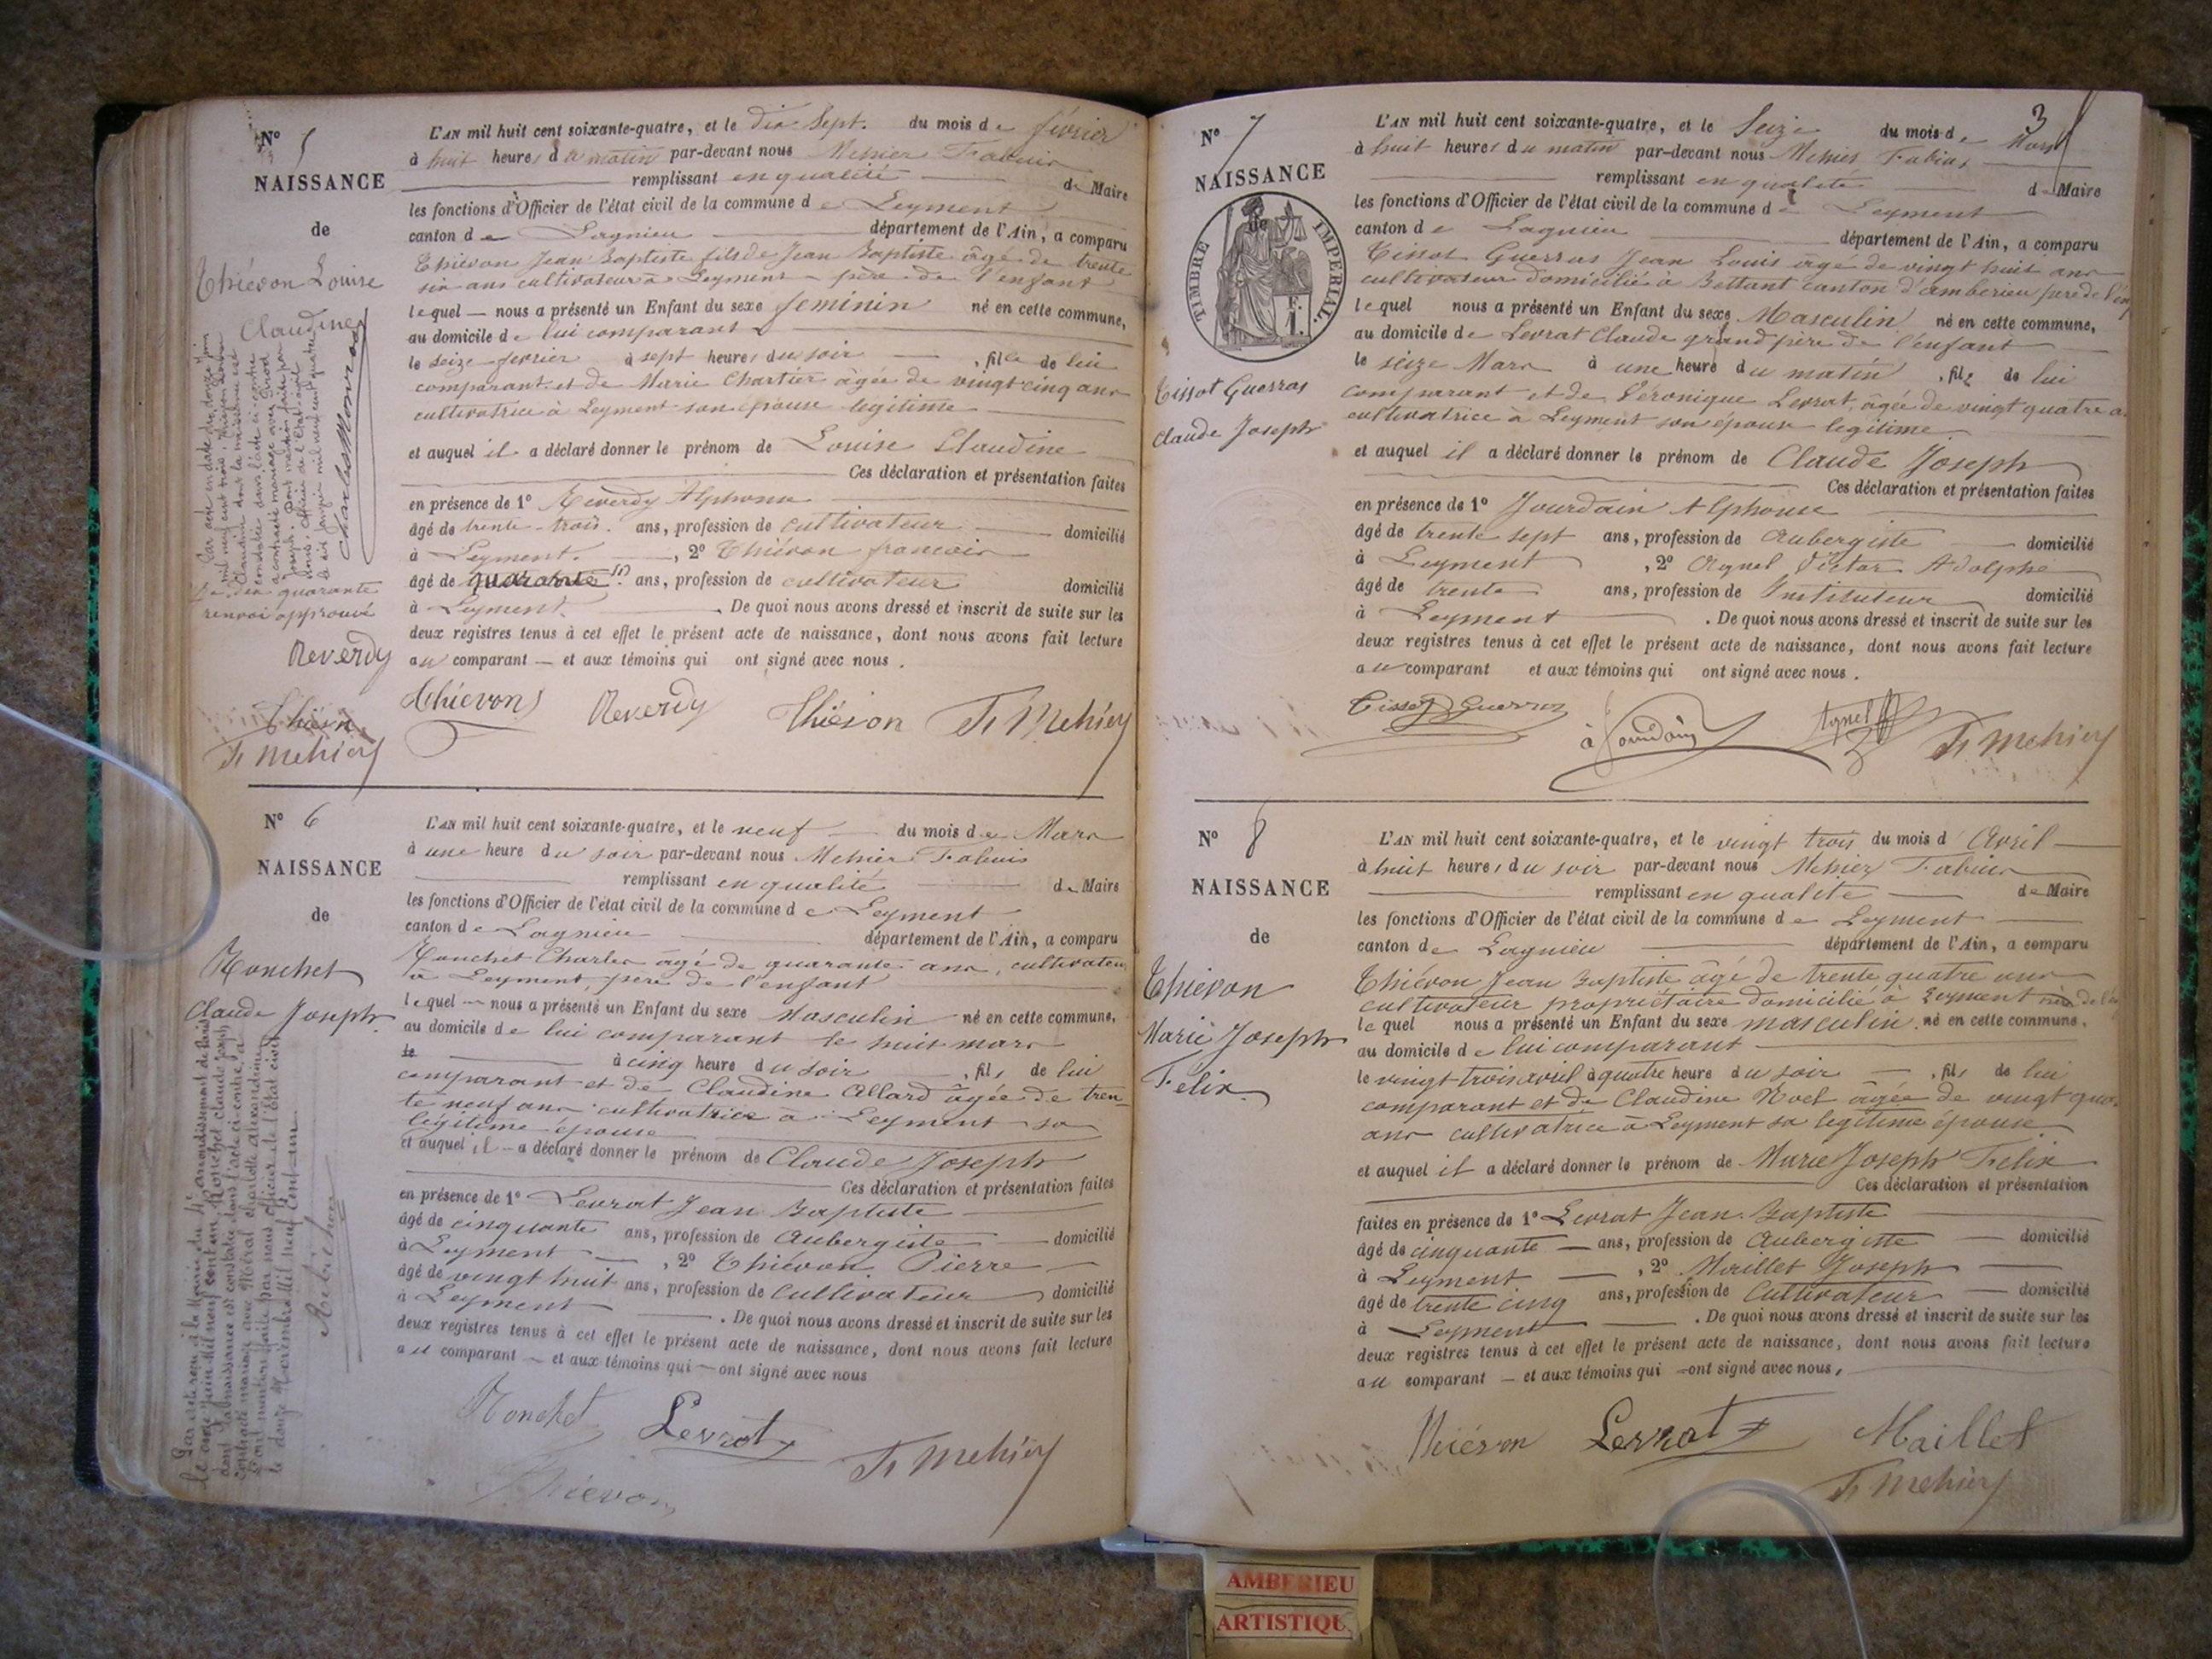 N° 5
NAISSANCE
de
Thiévon Louise
Claudine
L'AN mil huit cent soixante-quatre, et le dix Sept. du mois de février
à huit heures du matin par-devant nous Mehier Fabius
remplissant en qualité de Maire
les fonctions d'Officier de l'état civil de la commune de Leyment
canton de Lagnieu département de l'Ain, a comparu
Thiévon Jean Baptiste fils de Jean Baptiste âgé de trente
six ans cultivateur à Leyment père de l'enfant
lequel nous a présenté un Enfant du sexe feminin né en cette commune,
au domicile de lui comparant
le seize fevrier à sept heures du soir, fille de lui
comparant et de Marie Chartier âgée de vingt cinq ans
cultivatrice à Leyment son épouse legitime
et auquel il a déclaré donner le prénom de Louise Claudine
Ces déclaration et présentation faites
en présence de 1° Reverdy Alphonse
âgé de trente-trois ans, profession de cultivateur domicilié
à Leyment, 2° Thiévon francois
âgé de quarante (1) ans, profession de cultivateur domicilié
à Leyment. De quoi nous avons dressé et inscrit de suite sur les
deux registres tenus à cet effet le présent acte de naissance, dont nous avons fait lecture
au comparant et aux témoins qui ont signé avec nous.
quarante
renvoi approuvé
Reverdy
Thiévon
F. Mehier
Thievon Reverdy Thiévon F. Mehier
N° 6
NAISSANCE
de
Ronchet
Claude Joseph
L'AN mil huit cent soixante-quatre, et le neuf du mois de Mars
à une heure du soir par-devant nous Mehier Fabius
remplissant en qualité de Maire
les fonctions d'Officier de l'état civil de la commune de Leyment
canton de Lagnieu département de l'Ain, a comparu
Ronchet Charles âgé de quarante ans, cultivateur
à Leyment, père de l'enfant
lequel nous a présenté un Enfant du sexe Masculin né en cette commune,
au domicile de lui comparant le huit mars
le à cinq heure du soir, fils de lui
comparant et de Claudine Allard âgée de tren-
te neuf ans cultivatrice à Leyment sa
légitime épouse
et auquel il a déclaré donner le prénom de Claude Joseph
Ces déclaration et présentation faites
en présence de 1° Levrat Jean Baptiste
âgé de cinquante ans, profession de Aubergiste domicilié
à Leyment, 2° Thiévon Pierre
âgé de vingt huit ans, profession de Cultivateur domicilié
à Leyment. De quoi nous avons dressé et inscrit de suite sur les
deux registres tenus à cet effet le présent acte de naissance, dont nous avons fait lecture
au comparant et aux témoins qui ont signé avec nous
Ronchet Levrat
Thiévon F. Mehier
3
N° 7
NAISSANCE
de
TIMBRE IMPERIAL
F.
1.
Tissot Guerras
Claude Joseph
L'AN mil huit cent soixante-quatre, et le Seize du mois de Mars
à huit heures du matin par-devant nous Mehier Fabius
remplissant en qualité de Maire
les fonctions d'Officier de l'état civil de la commune de Leyment
canton de Lagnieu département de l'Ain, a comparu
Tissot Guerras Jean Louis âgé de vingt huit ans
cultivateur domicilié à Bettant canton d'amberieu père de l'enf
lequel nous a présenté un Enfant du sexe Masculin né en cette commune,
au domicile de Levrat Claude grand père de l'enfant
le seize Mars à une heure du matin, fils de lui
comparant et de Véronique Levrat, âgée de vingt quatre a
cultivatrice à Leyment son épouse legitime
et auquel il a déclaré donner le prénom de Claude Joseph
Ces déclaration et présentation faites
en présence de 1° Jourdain Alphonse
âgé de trente sept ans, profession de Aubergiste domicilié
à Leyment, 2° Agnel Victor Adolphe
âgé de trente ans, profession de Instituteur domicilié
à Leyment. De quoi nous avons dressé et inscrit de suite sur les
deux registres tenus à cet effet le présent acte de naissance, dont nous avons fait lecture
au comparant et aux témoins qui ont signé avec nous.
Tissot Guerras à Jourdain Agnel F. Mehier
N° 8
NAISSANCE
de
Thievon
Marie Joseph
Felix
L'AN mil huit cent soixante-quatre, et le vingt trois du mois d'Avril
à huit heures du soir par-devant nous Mehier Fabius
remplissant en qualité de Maire
les fonctions d'Officier de l'état civil de la commune de Leyment
canton de Lagnieu département de l'Ain, a comparu
Thiévon Jean Baptiste âgé de trente quatre ans
cultivateur propriétaire domicilié à Leyment
lequel nous a présenté un Enfant du sexe masculin né en cette commune.
au domicile de lui comparant
le vingt trois avril à quatre heure du soir, fils de lui
comparant et de Claudine Noel âgée de vingt
ans cultivatrice à Leyment sa legitime épouse
et auquel il a déclaré donner le prénom de Marie Joseph Felix
Ces déclaration et présentation
faites en présence de 1° Levrat Jean Baptiste
âgé de cinquante ans, profession de Aubergiste domicilié
à Leyment, 2° Maillet Joseph
âgé de trente cinq ans, profession de Cultivateur domicilié
à Leyment. De quoi nous avons dressé et inscrit de suite sur les
deux registres tenus à cet effet le présent acte de naissance, dont nous avons fait lecture
au comparant et aux témoins qui ont signé avec nous,
Thiévon Levrat Maillet
F. Mehier
AMBERIEU
ARTISTIQU